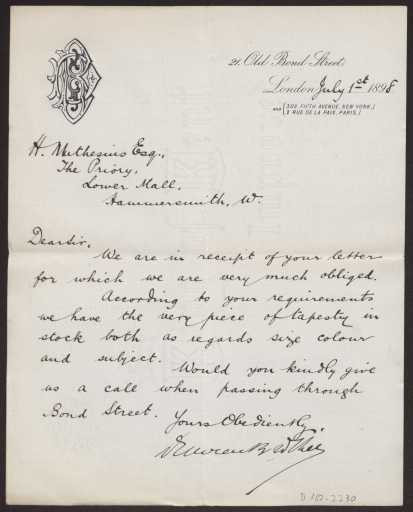 21, Old Bond Street,
London, July 1st 1898
AND {303 FIFTH AVENUE, NEW YORK,}
{2 RUE DE LA PAIX, PARIS,}
H. Muthesius Esq.,
The Priory,
Lower Mall,
Hammersmith, W.
Dear Sir,
We are in receipt of your letter
for which we are very much obliged.
According to your requirements
we have the very piece of tapestry in
stock both as regards size colour
and subject. Would you kindly give
us a call when passing through
Bond Street. Yours Obediently,
D 102-2230